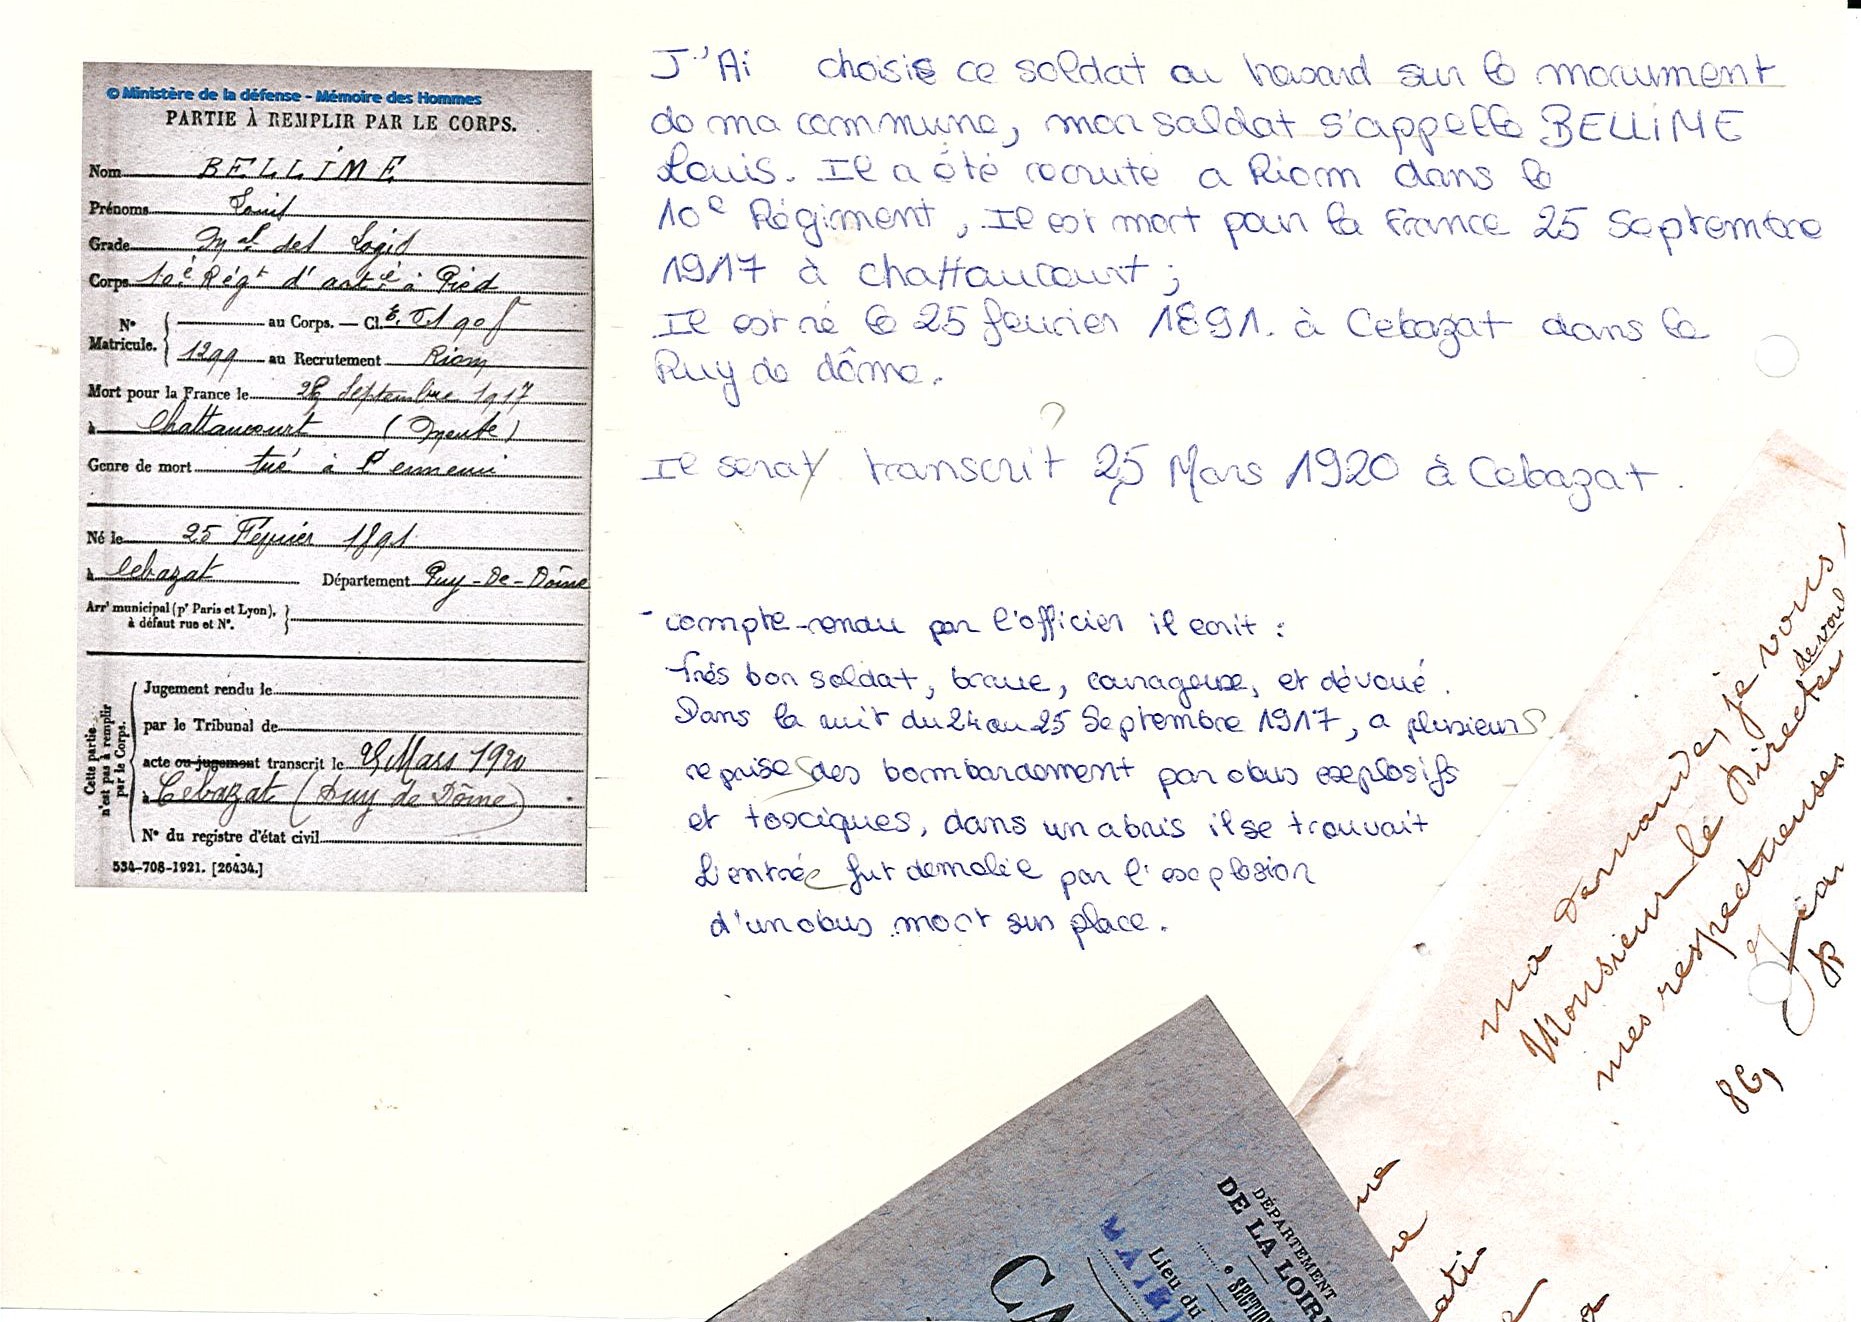 © Ministère de la défense - Mémoire des Hommes
PARTIE À REMPLIR PAR LE CORPS.
Nom BELLIME
Prénoms Louis
Grade Mal des Logis
Corps 10e Régt d'artie à Pied
No Matricule. au Corps. — Cl.
1299 au Recrutement Riom
Mort pour la France le Septembre 1917
à Chattancourt (Meuse)
Genre de mort tué à l'ennemi
Né le 25 Février 1891
à Cebazat Département Puy-De-Dôme
Arrt municipal (pr Paris et Lyon),
à défaut rue et No.
Cette partie n'est pas à remplir par le Corps.
Jugement rendu le
par le Tribunal de
acte ou jugement transcrit le 25 Mars 1920
à Cebazat (Puy de Dôme)
No du registre d'état civil
534-708-1921. [26434.]
J'Ai choisie ce soldat au hasard sur le monument
de ma commune, mon soldat s'appelle BELLiME
Louis. Il a été recruté a Riom dans le
10e Régiment, Il est mort pour la France 25 Septembre
1917 à chattaucourt ;
Il est né le 25 fevrier 1891. à Cebazat dans le
Puy de dôme.
?
Il serat transcrit 25 Mars 1920 à Cebazat.
- compte-rendu par l'officier il ecrit :
trés bon soldat, brave, courageux, et dévoué.
Dans la nuit du 24 au 25 Septembre 1917, a plusieurs
reprises des bombardement par obus explosifs
et toxiques, dans un abris il se trouvait
L'entrée fut demolie par l'explosion
d'un obus mort sur place.
ma demande, je vous
de vous
Monsieur le Directeur
mes respectueuses
86,
DÉPARTEMENT
DE LA LOIR
SECTION
Lieu du
MAIRI
CA